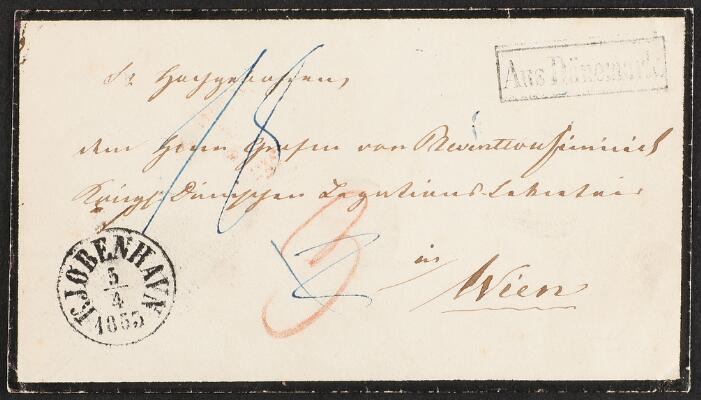 Aus Dänemark
Sr Hochgeboren,
dem Herrn Grafen von Reventlow Criminil
Königl. Dänischen Legations-Sekretair
in
Wien
KJØBENHAVN
5/4
1855
18
3